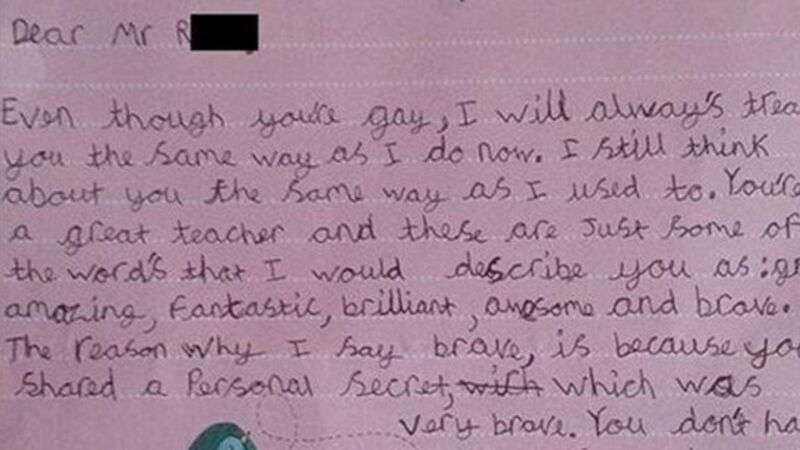 Dear Mr R
Even though you're gay, I will always's trea
you the same way as I do now. I still think
about you the same way as I used to. You're
a great teacher and these are just some of
the word's that I would describe you as: gr
amazing, fantastic, brilliant, awesome and brave.
The reason why I say brave, is because yo
shared a personal secret, with which was
very brave. You don't ha